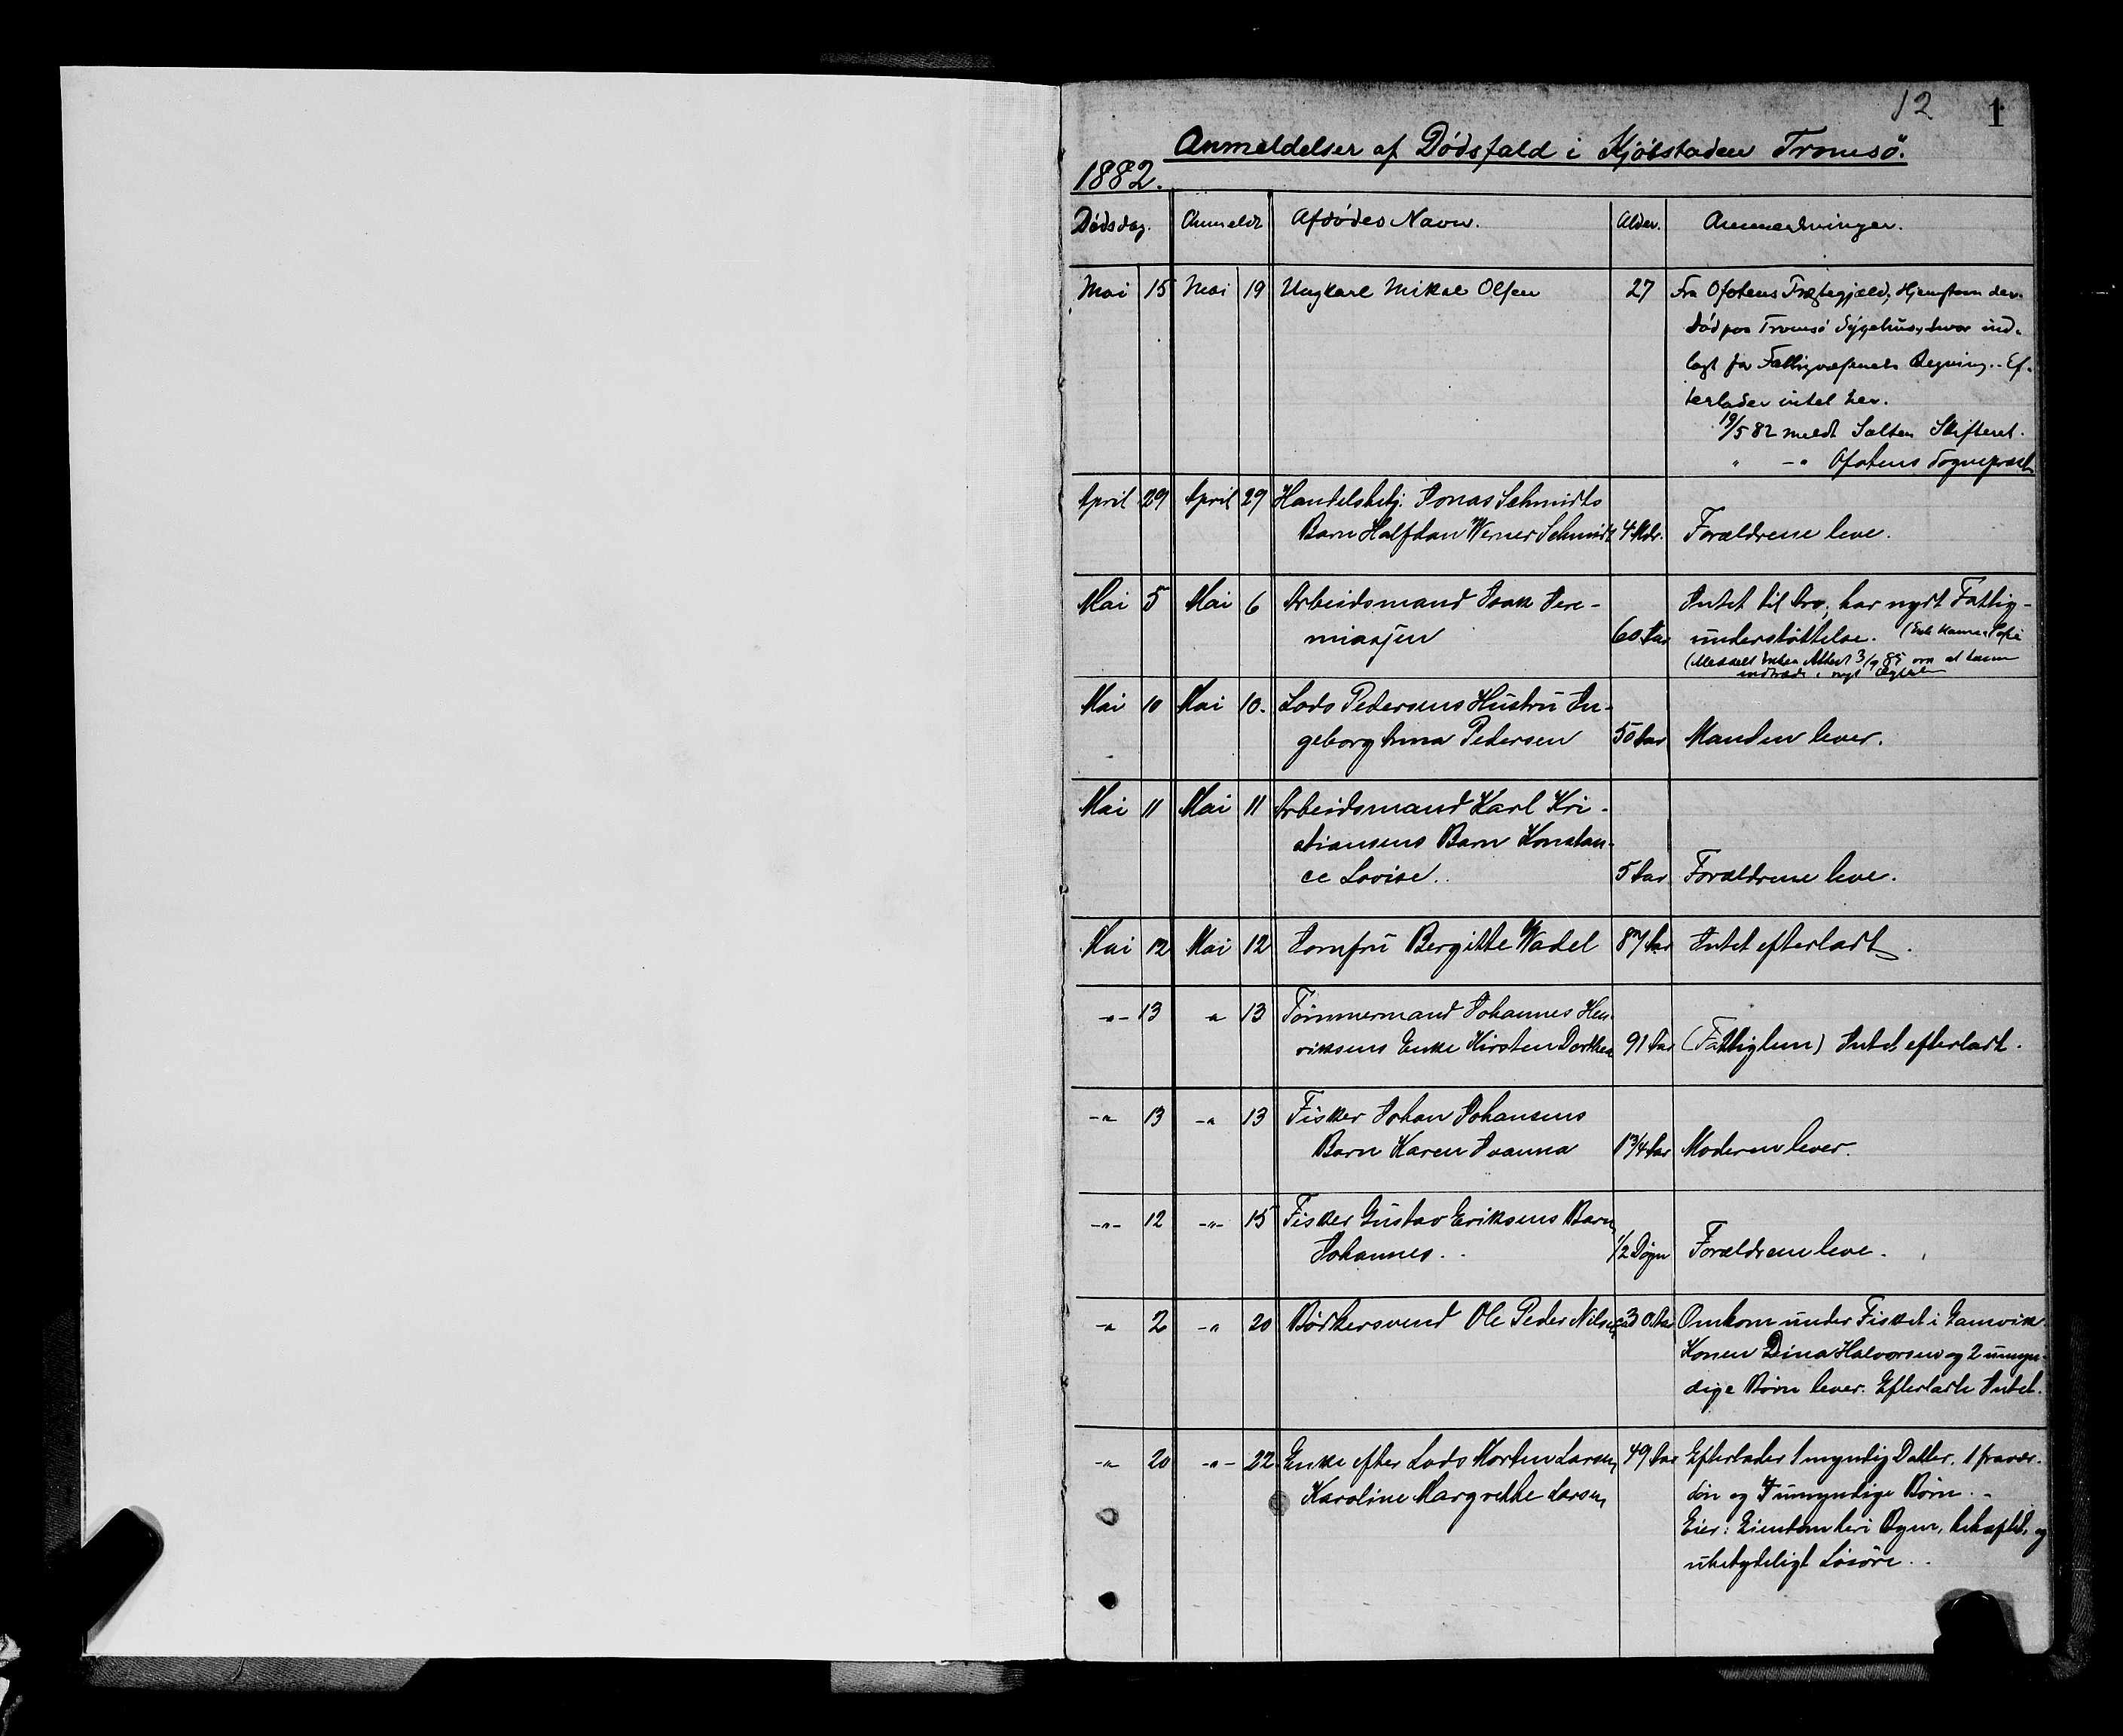 12 1
Anmeldelser af Dødsfald i Kjøbstaden Tromsø.
1882.
Dødsdag. Anmeldt Afdødes Navn. Alder. Anmærkninger.
Mai 15 Mai 19 Ungkarl Mikal Olsen 27 Fra Ofotens Præstegjæld, Hjemstavn der.
Død paa Tromsø Sygehus, hvor ind-
lagt for Fattigvæsenets Regning. Ef-
terlader intet her.
19/5 82 meldt Salten Skifteret.
" -"- Ofotens Sognepræst
April 29 April 29 Handelsbetj. Jonas Schmidts
Barn Halfdan Werner Schmidt 4 Mdr. Forældrene leve.
Mai 5 Mai 6 Arbeidsmand Isak Jere- Intet til Arv, har nydt Fattig-
miasen 60 Aar understøttelse. (Enke Sofie
(Meddelt Enken Attest 3/9 85 om at kunne
indtræde i nyt Ægteskab
Mai 10 Mai 10. Lods Pedersens Hustru In-
geborg Anna Pedersen 50 Aar Manden lever.
Mai 11 Mai 11 Arbeidsmand Karl Kri-
stiansens Barn Konstan-
ce Lovise.. 5 Aar Forældrene leve.
Mai 12 Mai 12 Jomfru Bergitte Wadel 87 Aar Intet efterladt.
-"- 13 " 13 Tømmermand Johannes Hen-
riksens Enke Kirsten Dorthea 91 Aar (Fattiglem) Intet efterladt.
-"- 13 -"- 13 Fisker Johan Johansens
Barn Karen Joanna 1 3/4 Aar Moderen lever.
-"- 12 -"- 15 Fisker Gustav Eriksens Barn
Johannes.. 1/2 Døgn Forældrene leve.
-"- 2 -"- 20 Bødkersvend Ole Peder Nilsen 30 Aar Omkom under Fisket i Gamvik.
Konen Dina Halvorsen og 2 umyn-
dige Børn lever. Efterladt Intet.
-"- 20 -"- 22. Enke efter Lods Morten Larsen, 49 Aar Efterlader 1 myndig Datter, 1
Karoline Margrethe Larsen og 7 umyndige Børn.-
Eier: Eiendom her i Byen, behæftet, og
ubetydeligt Løsøre..